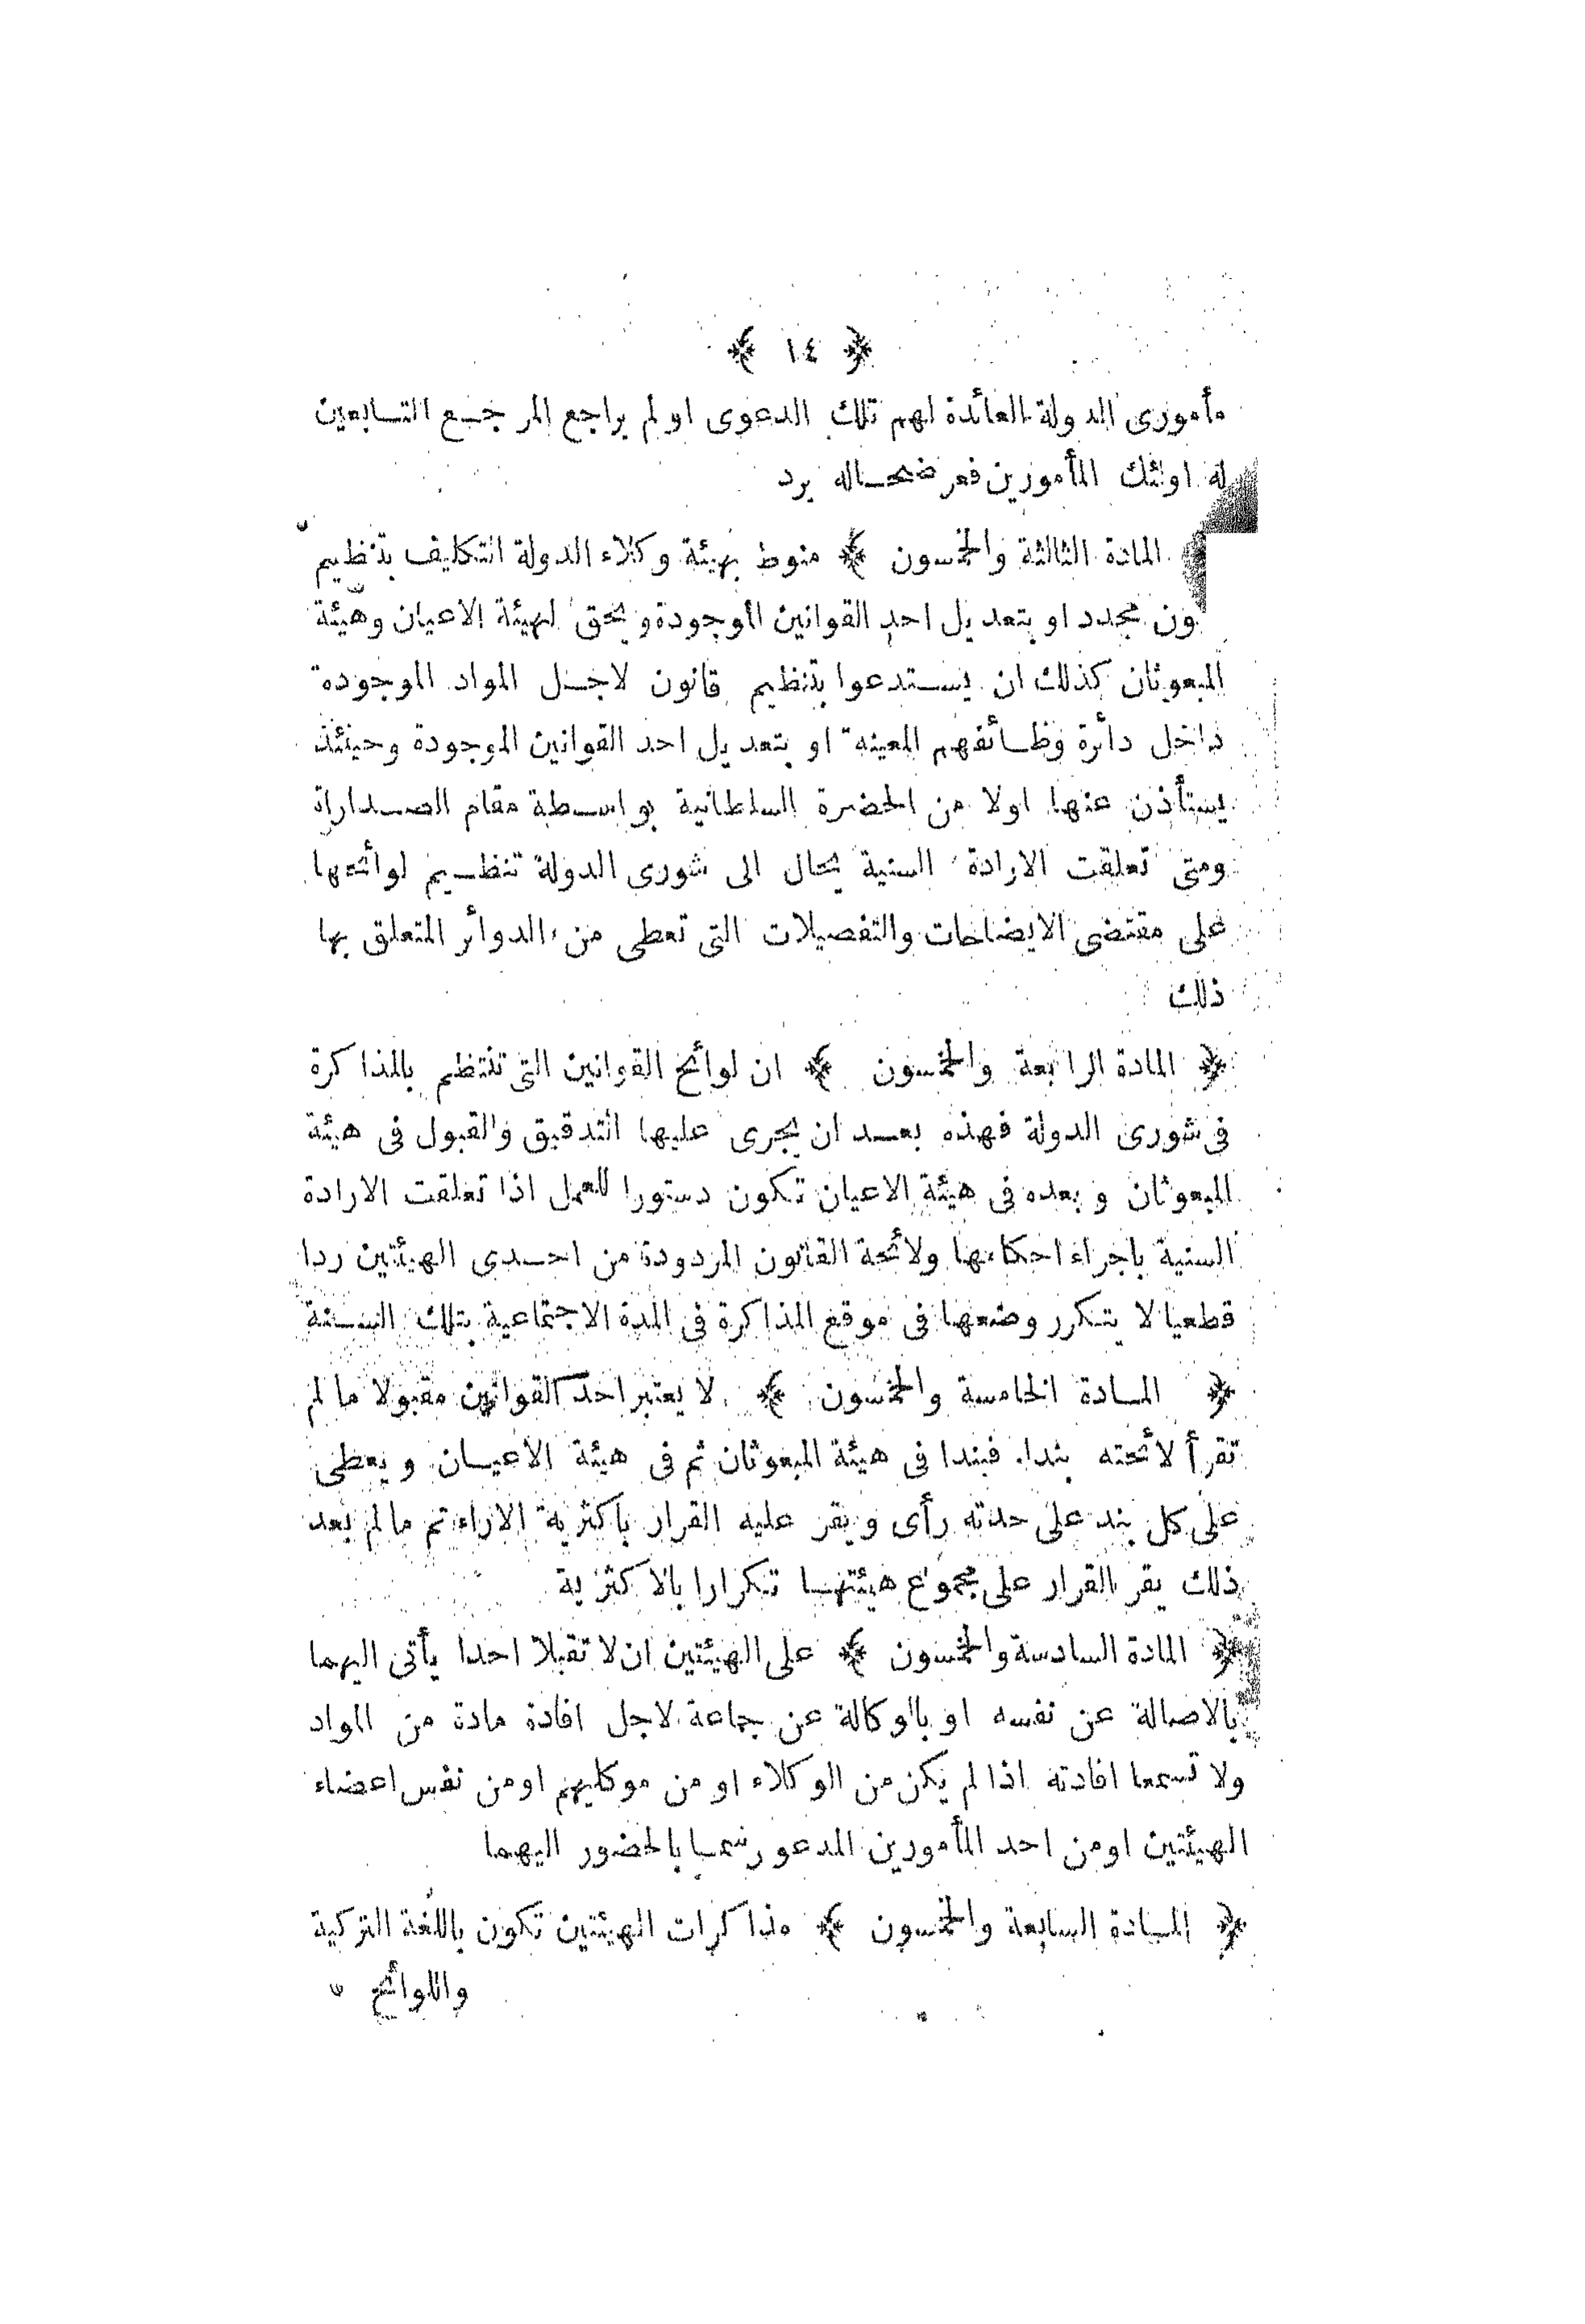 ﴿ ١٤ ﴾
مأمورى الدولة العائدة لهم تلك الدعوى او لم يراجع المرجع التابعين
له اولئك المأمورين فعرضحاله يرد
المادة الثالثة والخمسون ﴾ منوط بهيئة وكلاء الدولة التكليف بتنظيم
ون مجدد او بتعديل احد القوانين الموجودة ويحق لهيئة الاعيان وهيئة
المبعوثان كذلك ان يستدعوا بتنظيم قانون لاجل المواد الموجودة
داخل دائرة وظائفهم المعينه او بتعديل احد القوانين الموجودة وحينئذ
يستأذن عنها اولا من الحضرة السلطانية بواسطة مقام الصدارة
ومتى تعلقت الارادة السنية يحال الى شورى الدولة تنظيم لوائحها
على مقتضى الايضاحات والتفصيلات التى تعطى من الدوائر المتعلق بها
ذلك
﴿ المادة الرابعة والخمسون ﴾ ان لوائح القوانين التى تنتظم بالمذاكرة
فى شورى الدولة فهذه بعد ان يجرى عليها التدقيق والقبول فى هيئة
المبعوثان وبعده فى هيئة الاعيان تكون دستورا للعمل اذا تعلقت الارادة
السنية باجراء احكامها ولائحة القانون المردودة من احدى الهيئتين ردا
قطعيا لا يتكرر وضعها فى موقع المذاكرة فى المدة الاجتماعية بتلك السنة
﴿ المادة الخامسة والخمسون ﴾ لا يعتبر احد القوانين مقبولا ما لم
تقرأ لائحته بندا فبندا فى هيئة المبعوثان ثم فى هيئة الاعيان ويعطى
على كل بند على حدته رأى ويقر عليه القرار باكثرية الاراء ثم مالم بعد
ذلك يقر القرار على مجموع هيئتها تكرارا بالاكثرية
﴿ المادة السادسة والخمسون ﴾ على الهيئتين ان لا تقبلا احدا يأتى اليهما
بالاصالة عن نفسه او بالوكالة عن جماعة لاجل افادة مادة من المواد
ولا تسمعا افادته اذا لم يكن من الوكلاء او من موكليهم اومن نفس اعضاء
الهيئتين اومن احد المأمورين المدعو رسميا بالحضور اليهما
﴿ المادة السابعة والخمسون ﴾ مذاكرات الهيئتين تكون باللغة التركية
واللوائح